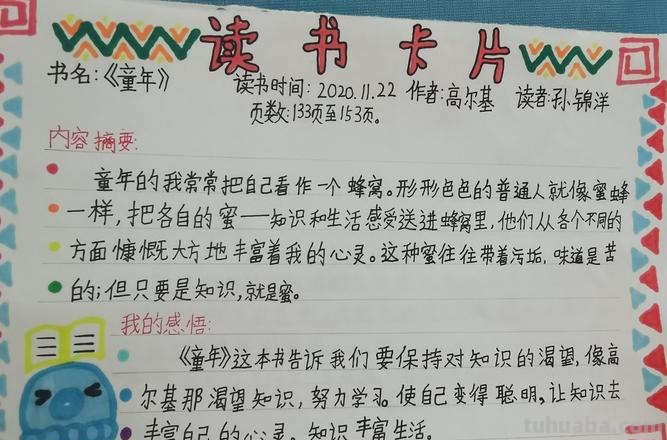 读书卡片
书名:《童年》 读书时间: 2020.11.22 作者:高尔基 读者:孙锦洋
页数:133页至153页。
内容摘要:
童年的我常常把自己看作一个蜂窝。形形色色的普通人就像蜜蜂
一样,把各自的蜜——知识和生活感受送进蜂窝里,他们从各个不同的
方面慷慨大方地丰富着我的心灵。这种蜜往往带着污垢,味道是苦
的;但只要是知识,就是蜜。
我的感悟:
《童年》这本书告诉我们要保持对知识的渴望,像高
尔基那渴望知识,努力学习。使自己变得聪明,让知识去
丰富自己的心灵。知识丰富生活。
tuhuaba.com